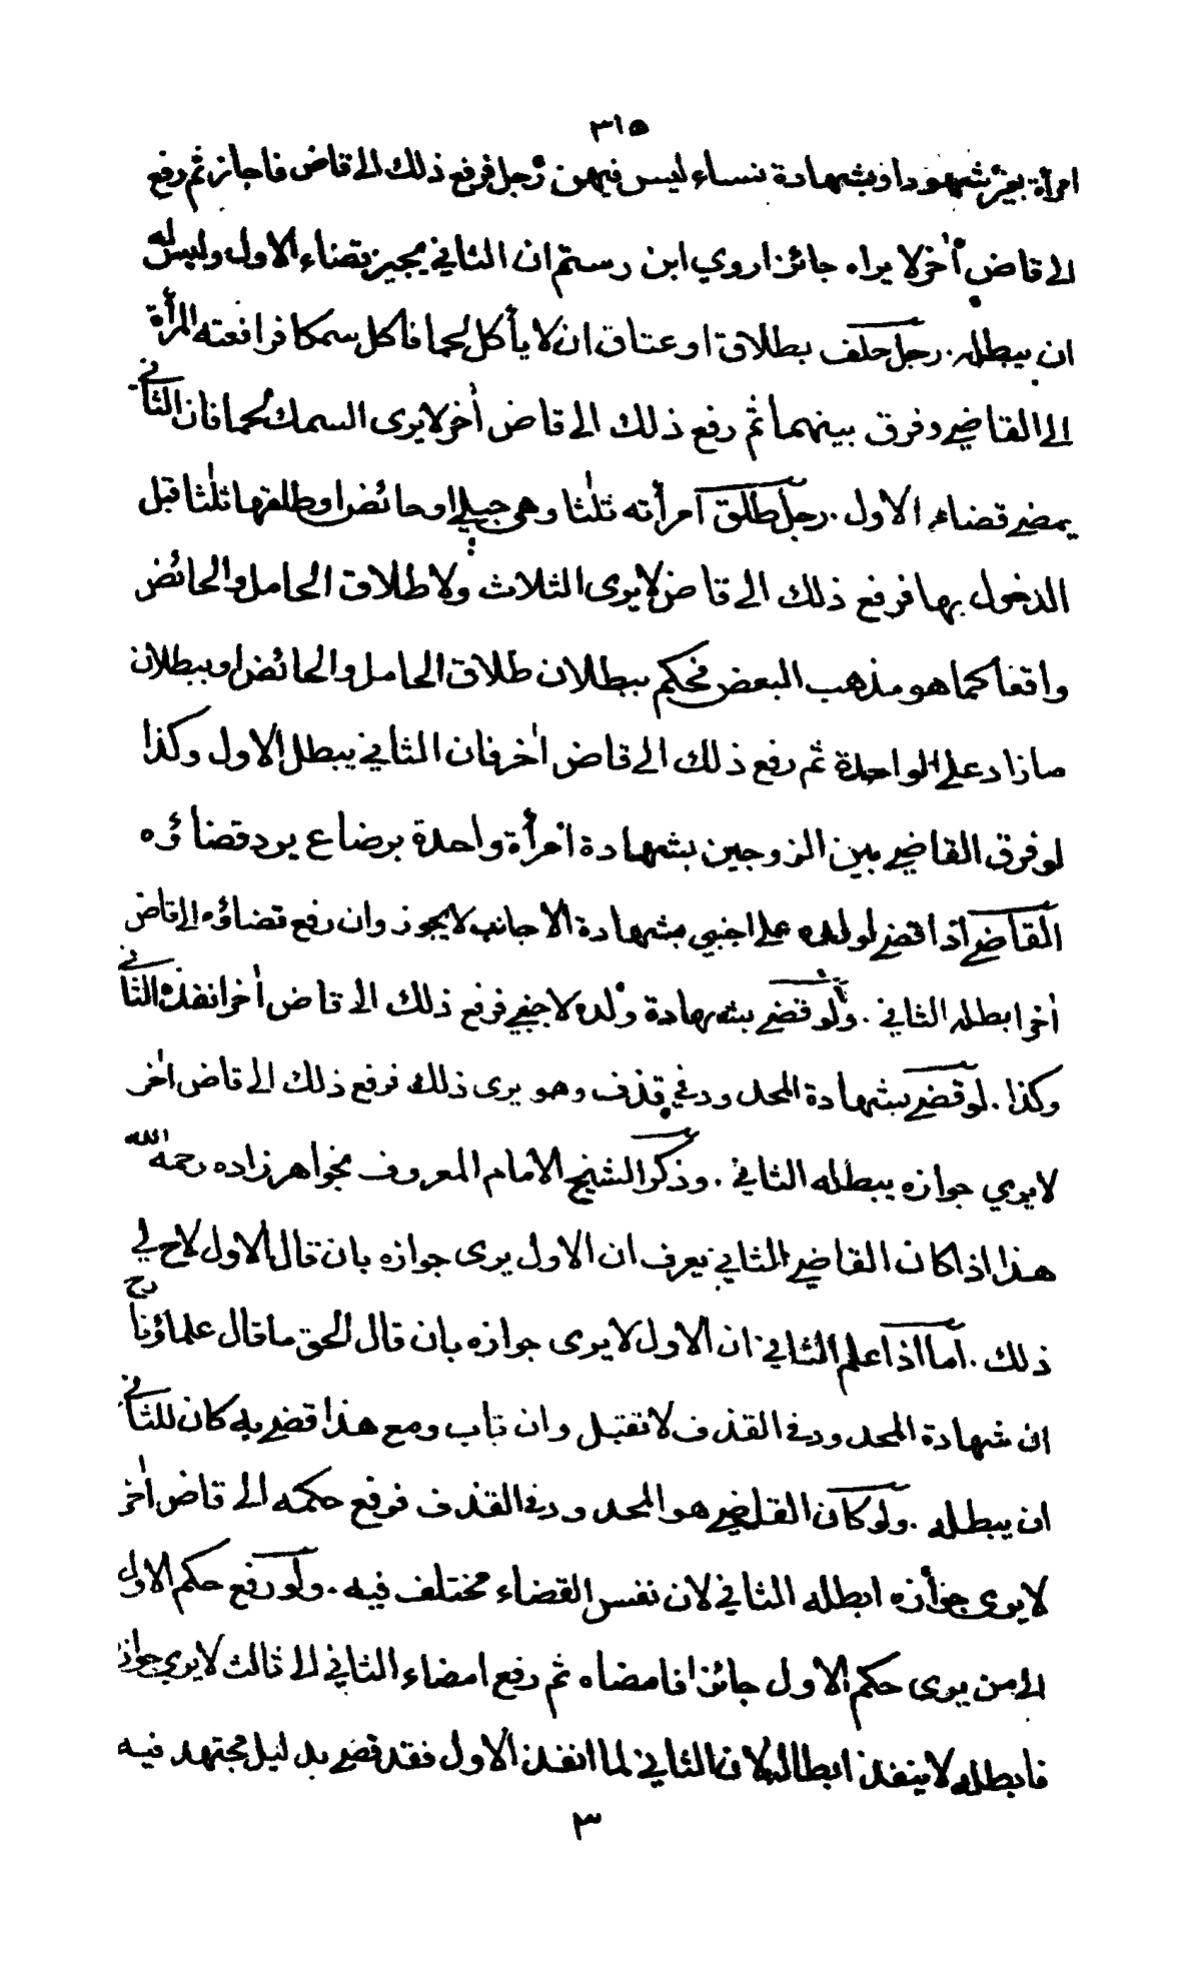 ٣١٥
امرأة بغير شهود او بشهادة نساء ليس فيهن رجل فرفع ذلك الى قاض فاجاز ثم رفع
الى قاض اٰخر لا يراه جائزا روي ابن رستم ان الثاني يجيز قضاء الاول وليس له
ان يبطله . رجل حلف بطلاق او عتاق ان لا يأكل لحما فاكل سمكا فرافعته المرأة
الى القاضي وفرق بينهما ثم رفع ذلك الى قاض اٰخر لا يرى السمك لحما فان الثاني
يمضي قضاء الاول . رجل طلق امرأته ثلٰثا وهي حبلى او حائض او طلقها ثلٰثا قبل
الدخول بها فرفع ذلك الى قاض لا يرى الثلاث ولا طلاق الحامل والحائض
واقعا كما هو مذهب البعض فحكم ببطلان طلاق الحامل والحائض او ببطلان
ما زاد على الواحدة ثم رفع ذلك الى قاض اٰخر فان الثاني يبطل الاول وكذا
لو فرق القاضي بين الزوجين بشهادة امرأة واحدة برضاع يرد قضاؤه
القاضي اذا قضى لولده على اجنبي بشهادة الاجانب لا يجوز وان رفع قضاؤه الى قاض
اٰخر ابطله الثاني . ولو قضى بشهادة ولده لاجنبي فرفع ذلك الى قاض اٰخر انفذه الثاني
وكذا . لو قضى بشهادة المحدود في قذف وهو يرى ذلك فرفع ذلك الى قاض اٰخر
لا يرى جوازه يبطله الثاني . وذكر الشيخ الامام المعروف بخواهر زاده رحمه الله
هذا اذا كان القاضي الثاني يعرف ان الاول يرى جوازه بان قال الاول لاح لي
ذلك . اما اذا علم الثاني ان الاول لا يرى جوازه بان قال الحق ما قال علماؤنا رح
ان شهادة المحدود في القذف لا تقبل وان تاب ومع هذا قضى به كان للثاني
ان يبطله . ولو كان القاضي هو المحدود في القذف فرفع حكمه الى قاض اٰخر
لا يرى جوازه ابطله الثاني لان نفس القضاء مختلف فيه . ولو رفع حكم الاول
الى من يرى حكم الاول جائزا فامضاه ثم رفع امضاء الثاني الى ثالث لا يرى جوازه
فابطله لا ينفذ ابطاله لان الثاني لما انفذ الاول فقد قضى بدليل مجتهد فيه
٣